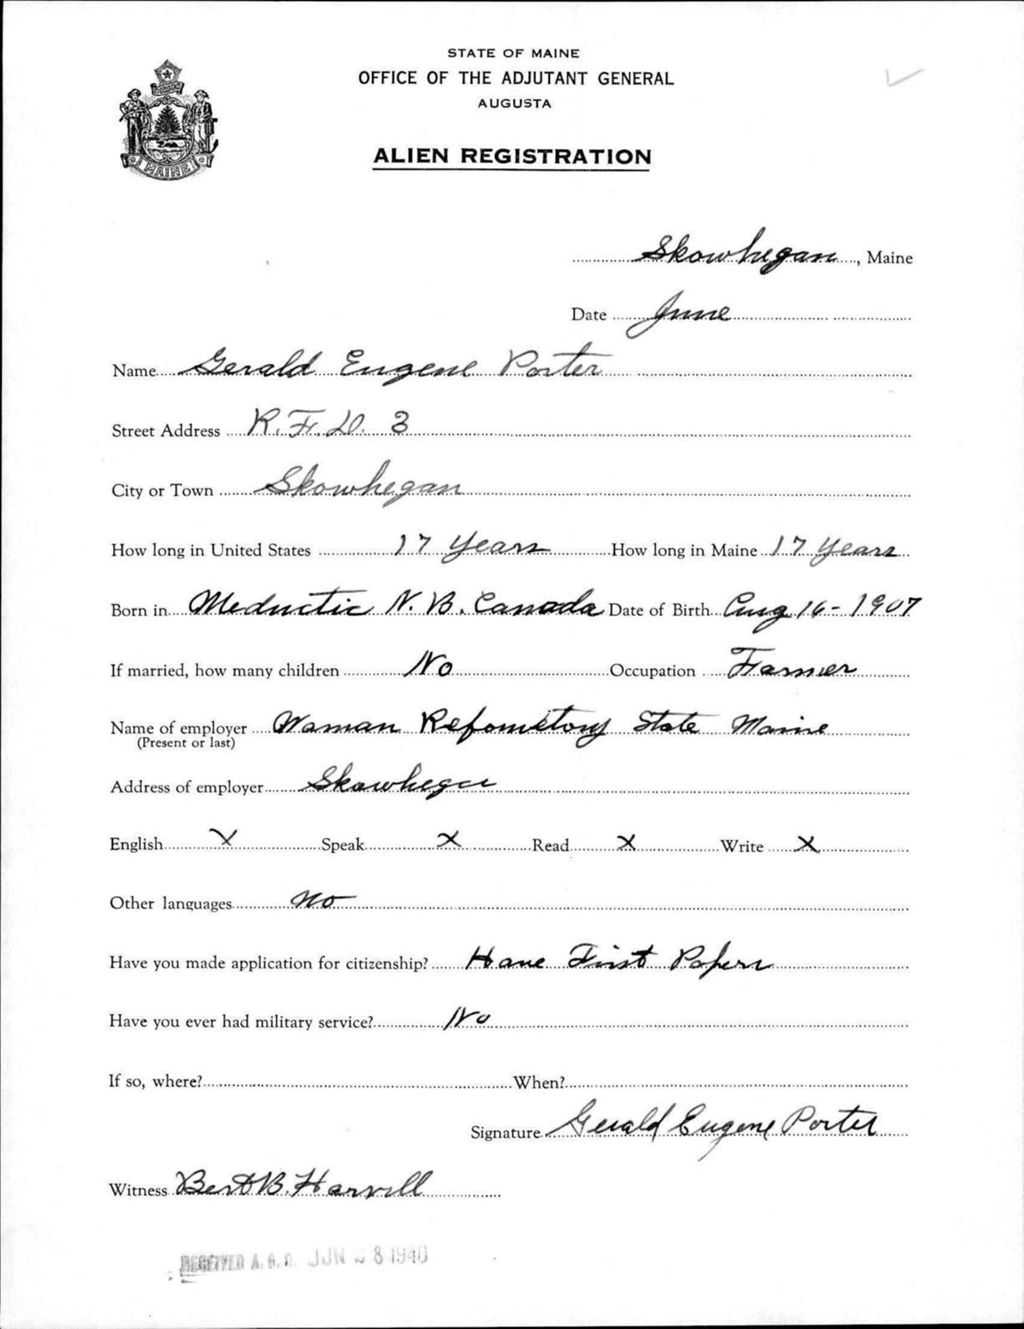 STATE OF MAINE
OFFICE OF THE ADJUTANT GENERAL
AUGUSTA
ALIEN REGISTRATION
MAINE
Skowhegan, Maine
Date June
Name Gerald Eugene Porter
Street Address R.F.D. 3
City or Town Skowhegan
How long in United States 17 Years How long in Maine 17 Years
Born in Meductic N.B. Canada Date of Birth Aug 16 - 1907
If married, how many children No Occupation Farmer
Name of employer Waman Refometory State Maine
(Present or last)
Address of employer Skowhegan
English X Speak X Read X Write X
Other languages No
Have you made application for citizenship? Have First Papers
Have you ever had military service? No
If so, where? When?
Signature Gerald Eugene Porter
Witness Bert B. Harvill
RECEIVED A.G.O. JUN 8 1940